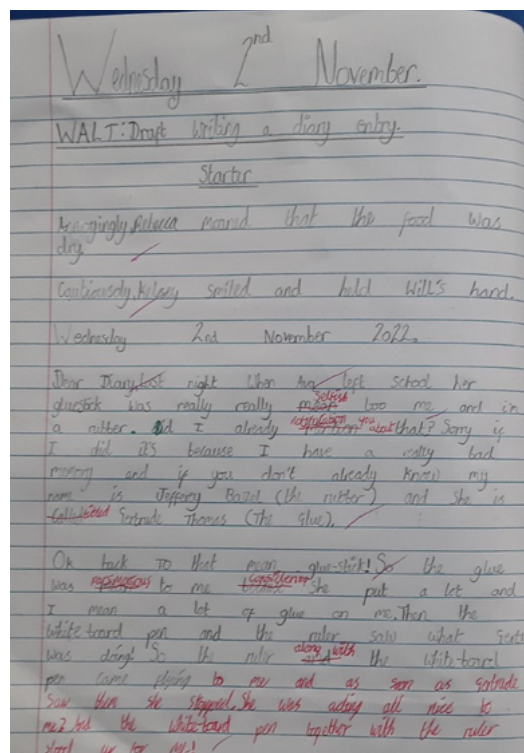 Wednesday 2nd November.
WALT: Draft writing a diary entry.
Starter
Rebecca moaned that the food was
dry.
Cautiously, Kelsey smiled and held Will's hand.
Wednesday 2nd November 2022.
Dear Diary, Last night When left school her
selfish
gluestick was really really mean too me and im
notification you about
a rubber. Did I already that? Sorry if
I did it's because I have a really bad
memory and if you don't already know my
name is Jeffery Bazel (the rubber) and she is
Called titled Gertrude Thomas (The glue).
Ok back TO that mean glue-stick! So the glue
was to me She put a lot and
I mean a lot of glue on me. Then the
white-board pen and the ruler saw what Gert
was doing! So the ruler along with the white-board
pen came flying to me and as soon as Gertrude
saw them she stopped. She was acting all nice to
me? had the white-board pen together with the ruler
stood up for me!